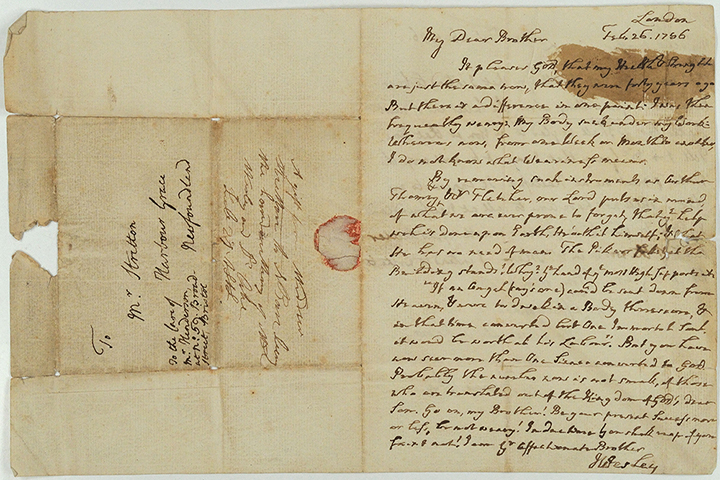 London
Feb. 26. 1786
My Dear Brother
It pleases God, that my Health & Strength
are just the same now, that they were forty years ago
But there is a difference in one point: I was then
frequently weary; My Body sunk under my Work:
Whereas now, from one Week or Month to another
I do not know what Weariness means.
By removing such instruments as Arthur
Thomey, & Mr Fletcher, our Lord puts us in mind
of what we are ever prone to forget, that ye help
which is done upon Earth, He doth it himself, & that
He has no need of man. The Pillars
Building stands! Why? Ye hand of ye most High supports it
"If an Angel (says one) could be sent down from
Heaven, & were to dwell in a Body threescore
in that time converted but One Immortal Soul
it would be worth all his Labour". But you have
now seen more than One Sinner converted to God
Probably the number now is not small, of those
who are translated out of the Kingdom of God's dear
Son. Go on, my Brother! Be your present Success more
or less, be not weary! In due time you shall reap if you
faint not! I am Yr affectionate Brother
JWesley
To
Mr Stretton
Harbour Grace
Newfoundland
To the Care of
Mr Henderson
at No. 39 Broad
Street Bristol